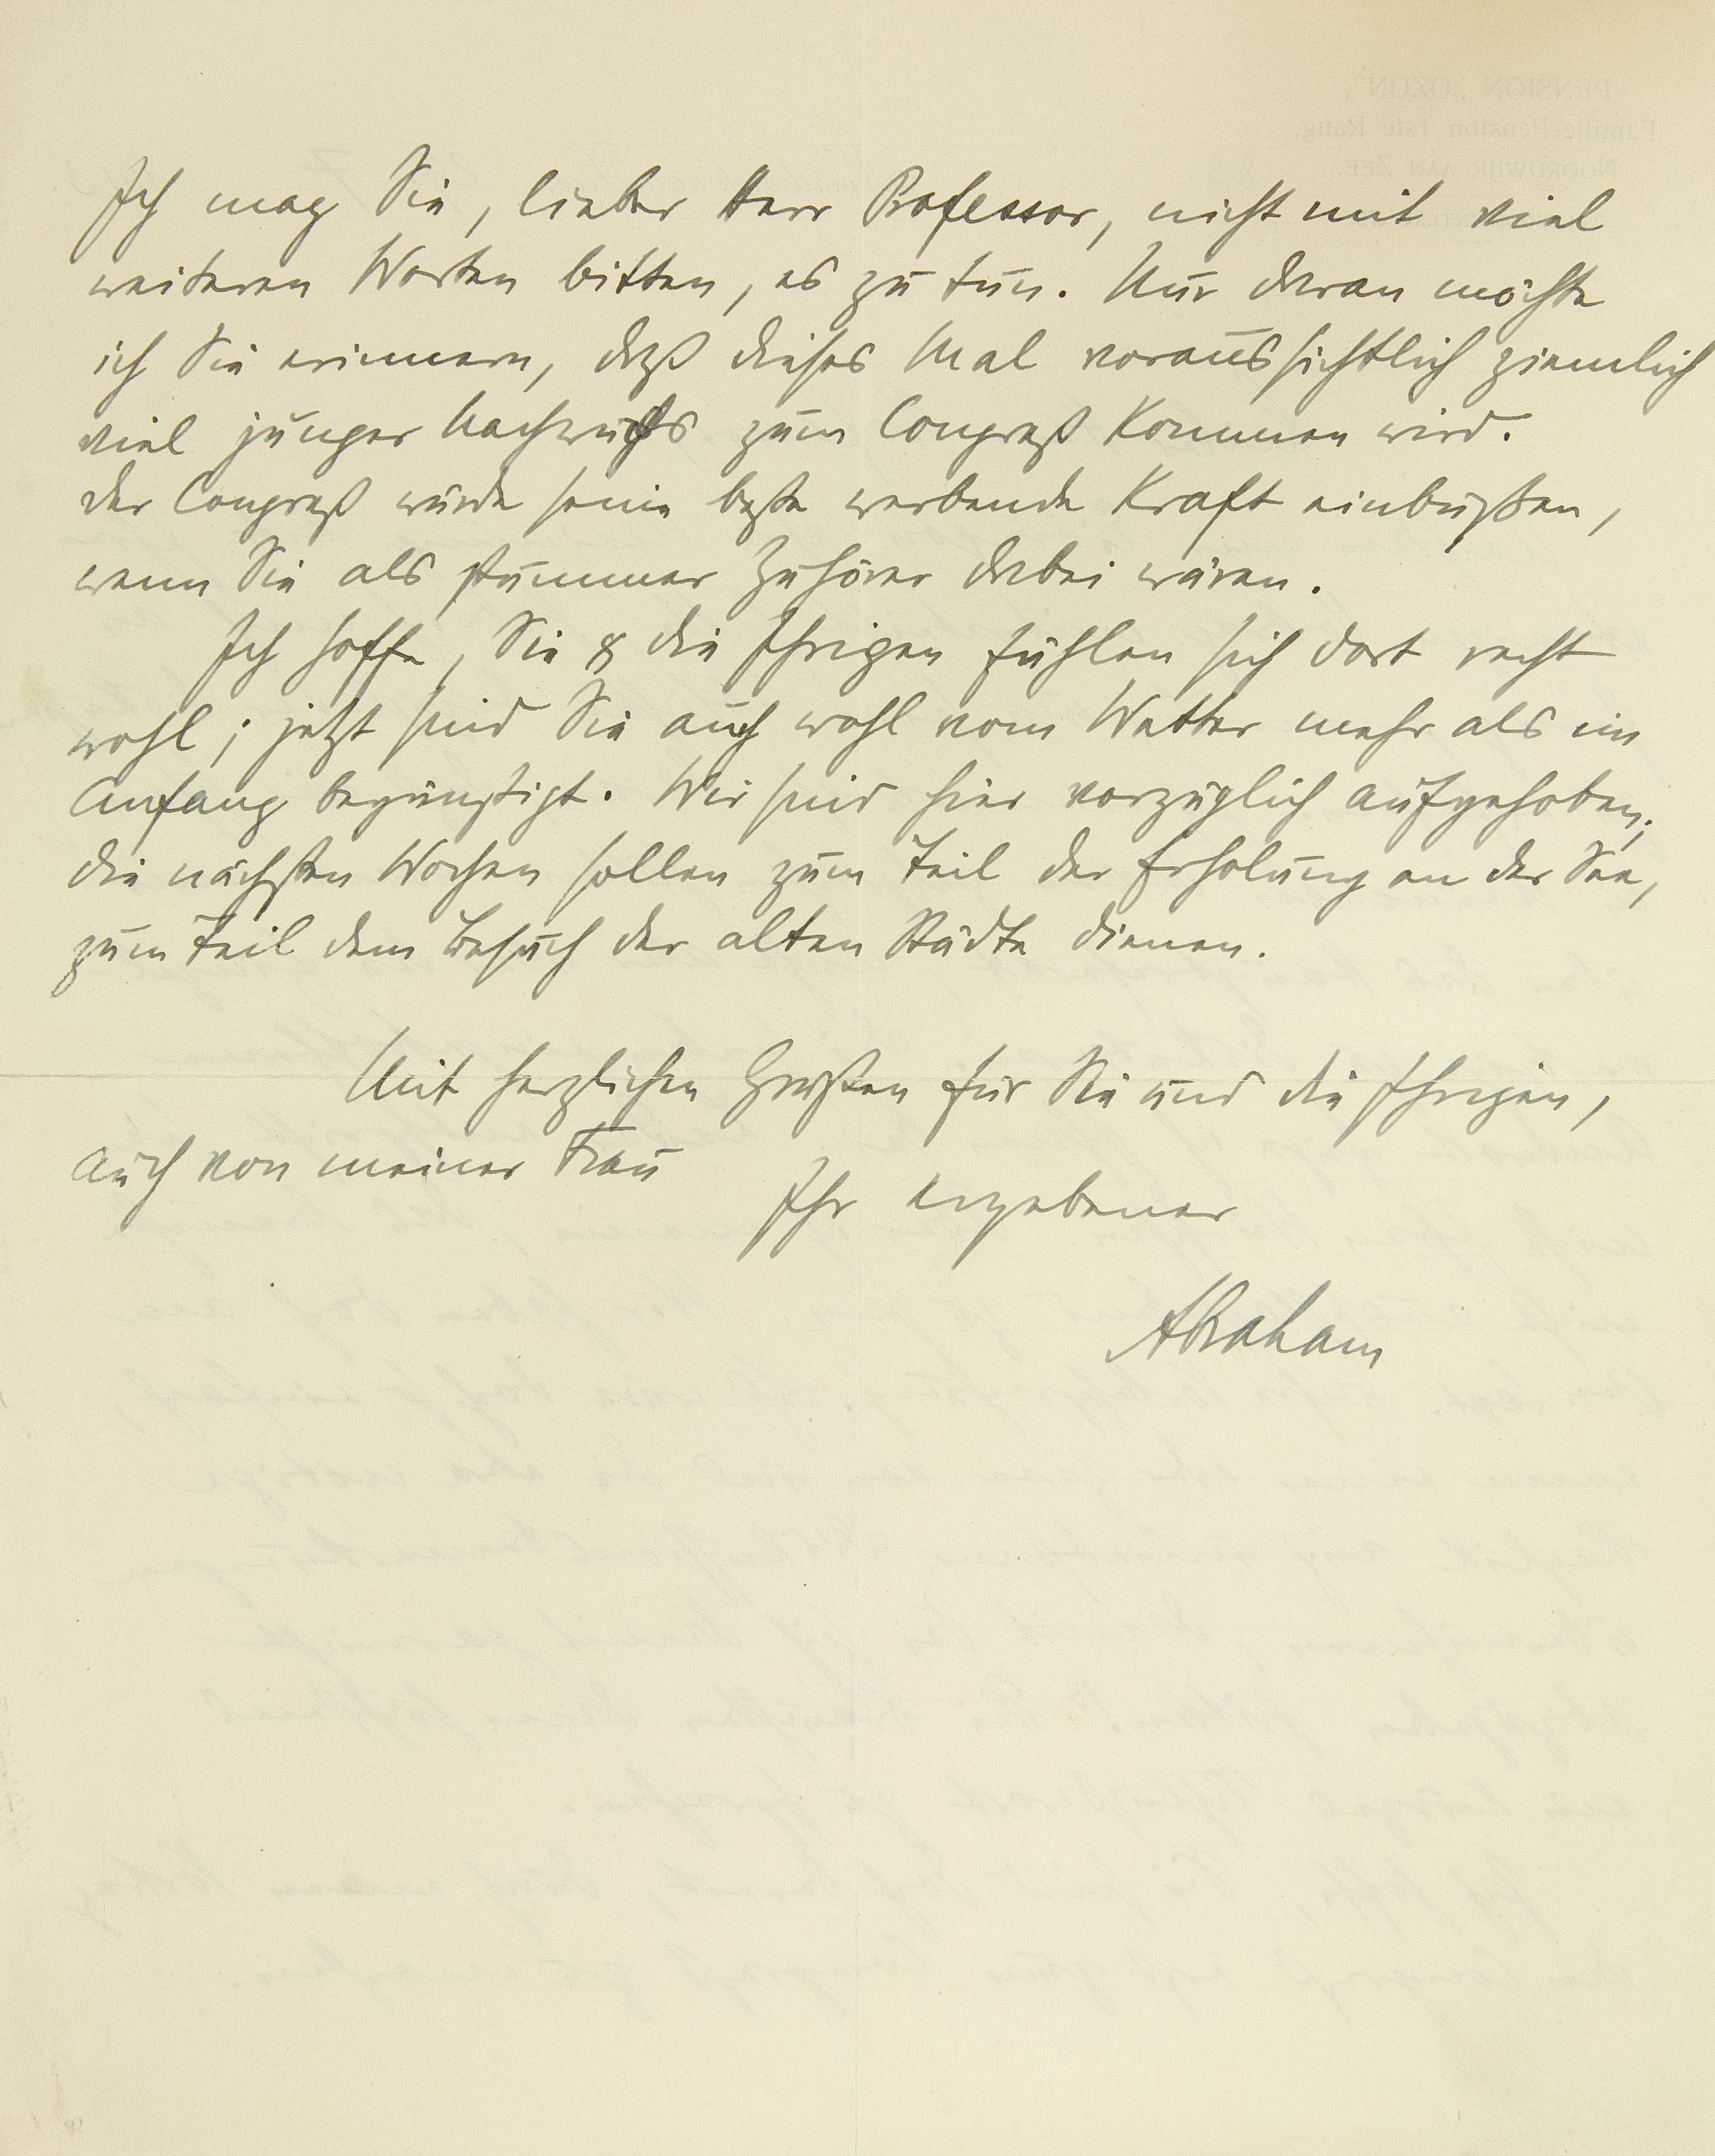 Ich mag Sie, lieber Herr Professor, nicht mit viel
weiteren Worten bitten, es zu tun. Nur daran möchte
ich Sie erinnern, daß dieses Mal voraussichtlich ziemlich
viel junger Nachwuchs zum Congreß kommen wird.
Der Congreß würde seine beste werbende Kraft einbüßen,
wenn Sie als stummer Zuhörer dabei wären.
Ich hoffe, Sie & die Ihrigen fühlen sich dort recht
wohl; jetzt sind Sie auch wohl vom Wetter mehr als im
Anfang begünstigt. Wir sind hier vorzüglich aufgehoben;
die nächsten Wochen sollen zum Teil der Erholung an der See,
zum Teil dem Besuch der alten Städte dienen.
Mit herzlichen Grüßen für Sie und die Ihrigen,
auch von meiner Frau
Ihr ergebener
Abraham